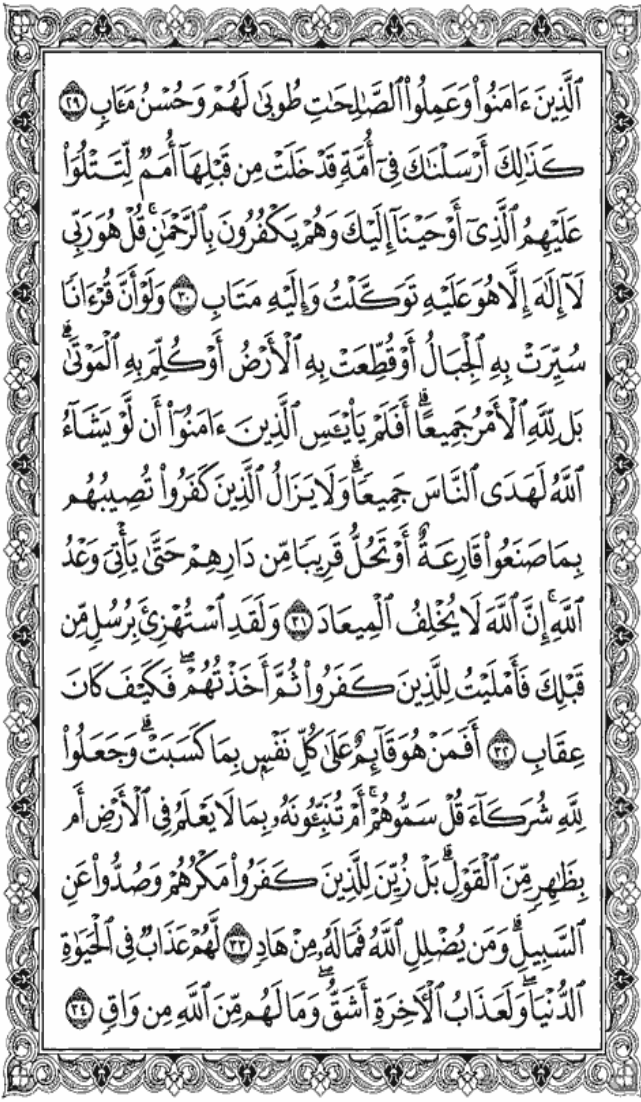 ٱلَّذِينَ ءَامَنُوا۟ وَعَمِلُوا۟ ٱلصَّـٰلِحَـٰتِ طُوبَىٰ لَهُمْ وَحُسْنُ مَـَٔابٍ ٢٩
كَذَٰلِكَ أَرْسَلْنَـٰكَ فِىٓ أُمَّةٍ قَدْ خَلَتْ مِن قَبْلِهَآ أُمَمٌ لِّتَتْلُوَا۟
عَلَيْهِمُ ٱلَّذِىٓ أَوْحَيْنَآ إِلَيْكَ وَهُمْ يَكْفُرُونَ بِٱلرَّحْمَـٰنِ ۚ قُلْ هُوَ رَبِّى
لَآ إِلَـٰهَ إِلَّا هُوَ عَلَيْهِ تَوَكَّلْتُ وَإِلَيْهِ مَتَابِ ٣٠ وَلَوْ أَنَّ قُرْءَانًا
سُيِّرَتْ بِهِ ٱلْجِبَالُ أَوْ قُطِّعَتْ بِهِ ٱلْأَرْضُ أَوْ كُلِّمَ بِهِ ٱلْمَوْتَىٰ ۗ
بَل لِّلَّهِ ٱلْأَمْرُ جَمِيعًا ۗ أَفَلَمْ يَا۟يْـَٔسِ ٱلَّذِينَ ءَامَنُوٓا۟ أَن لَّوْ يَشَآءُ
ٱللَّهُ لَهَدَى ٱلنَّاسَ جَمِيعًا ۗ وَلَا يَزَالُ ٱلَّذِينَ كَفَرُوا۟ تُصِيبُهُم
بِمَا صَنَعُوا۟ قَارِعَةٌ أَوْ تَحُلُّ قَرِيبًا مِّن دَارِهِمْ حَتَّىٰ يَأْتِىَ وَعْدُ
ٱللَّهِ ۚ إِنَّ ٱللَّهَ لَا يُخْلِفُ ٱلْمِيعَادَ ٣١ وَلَقَدِ ٱسْتُهْزِئَ بِرُسُلٍ مِّن
قَبْلِكَ فَأَمْلَيْتُ لِلَّذِينَ كَفَرُوا۟ ثُمَّ أَخَذْتُهُمْ ۖ فَكَيْفَ كَانَ
عِقَابِ ٣٢ أَفَمَنْ هُوَ قَآئِمٌ عَلَىٰ كُلِّ نَفْسٍۭ بِمَا كَسَبَتْ ۗ وَجَعَلُوا۟
لِلَّهِ شُرَكَآءَ قُلْ سَمُّوهُمْ ۚ أَمْ تُنَبِّـُٔونَهُۥ بِمَا لَا يَعْلَمُ فِى ٱلْأَرْضِ أَم
بِظَـٰهِرٍ مِّنَ ٱلْقَوْلِ ۗ بَلْ زُيِّنَ لِلَّذِينَ كَفَرُوا۟ مَكْرُهُمْ وَصُدُّوا۟ عَنِ
ٱلسَّبِيلِ ۗ وَمَن يُضْلِلِ ٱللَّهُ فَمَا لَهُۥ مِنْ هَادٍ ٣٣ لَّهُمْ عَذَابٌ فِى ٱلْحَيَوٰةِ
ٱلدُّنْيَا ۖ وَلَعَذَابُ ٱلْـَٔاخِرَةِ أَشَقُّ ۖ وَمَا لَهُم مِّنَ ٱللَّهِ مِن وَاقٍ ٣٤